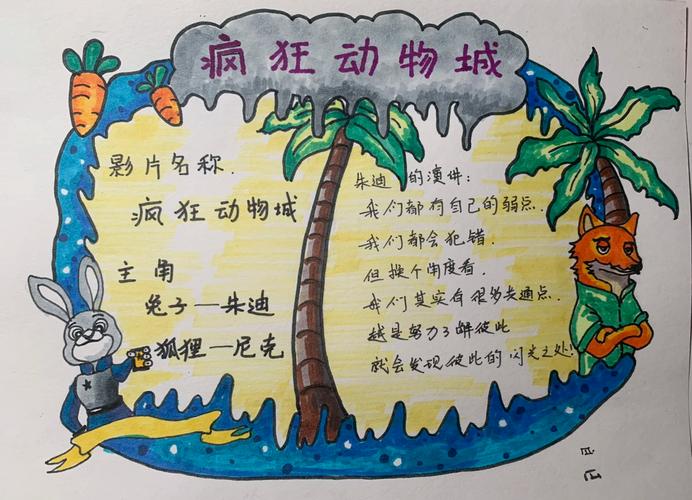 疯狂动物城
影片名称.
疯狂动物城
主角
兔子—朱迪
狐狸—尼克
朱迪的演讲:
我们都有自己的弱点.
我们都会犯错.
但换个角度看.
我们其实有很多共通点.
越是努力了解彼此
就会发现彼此的闪光之处!